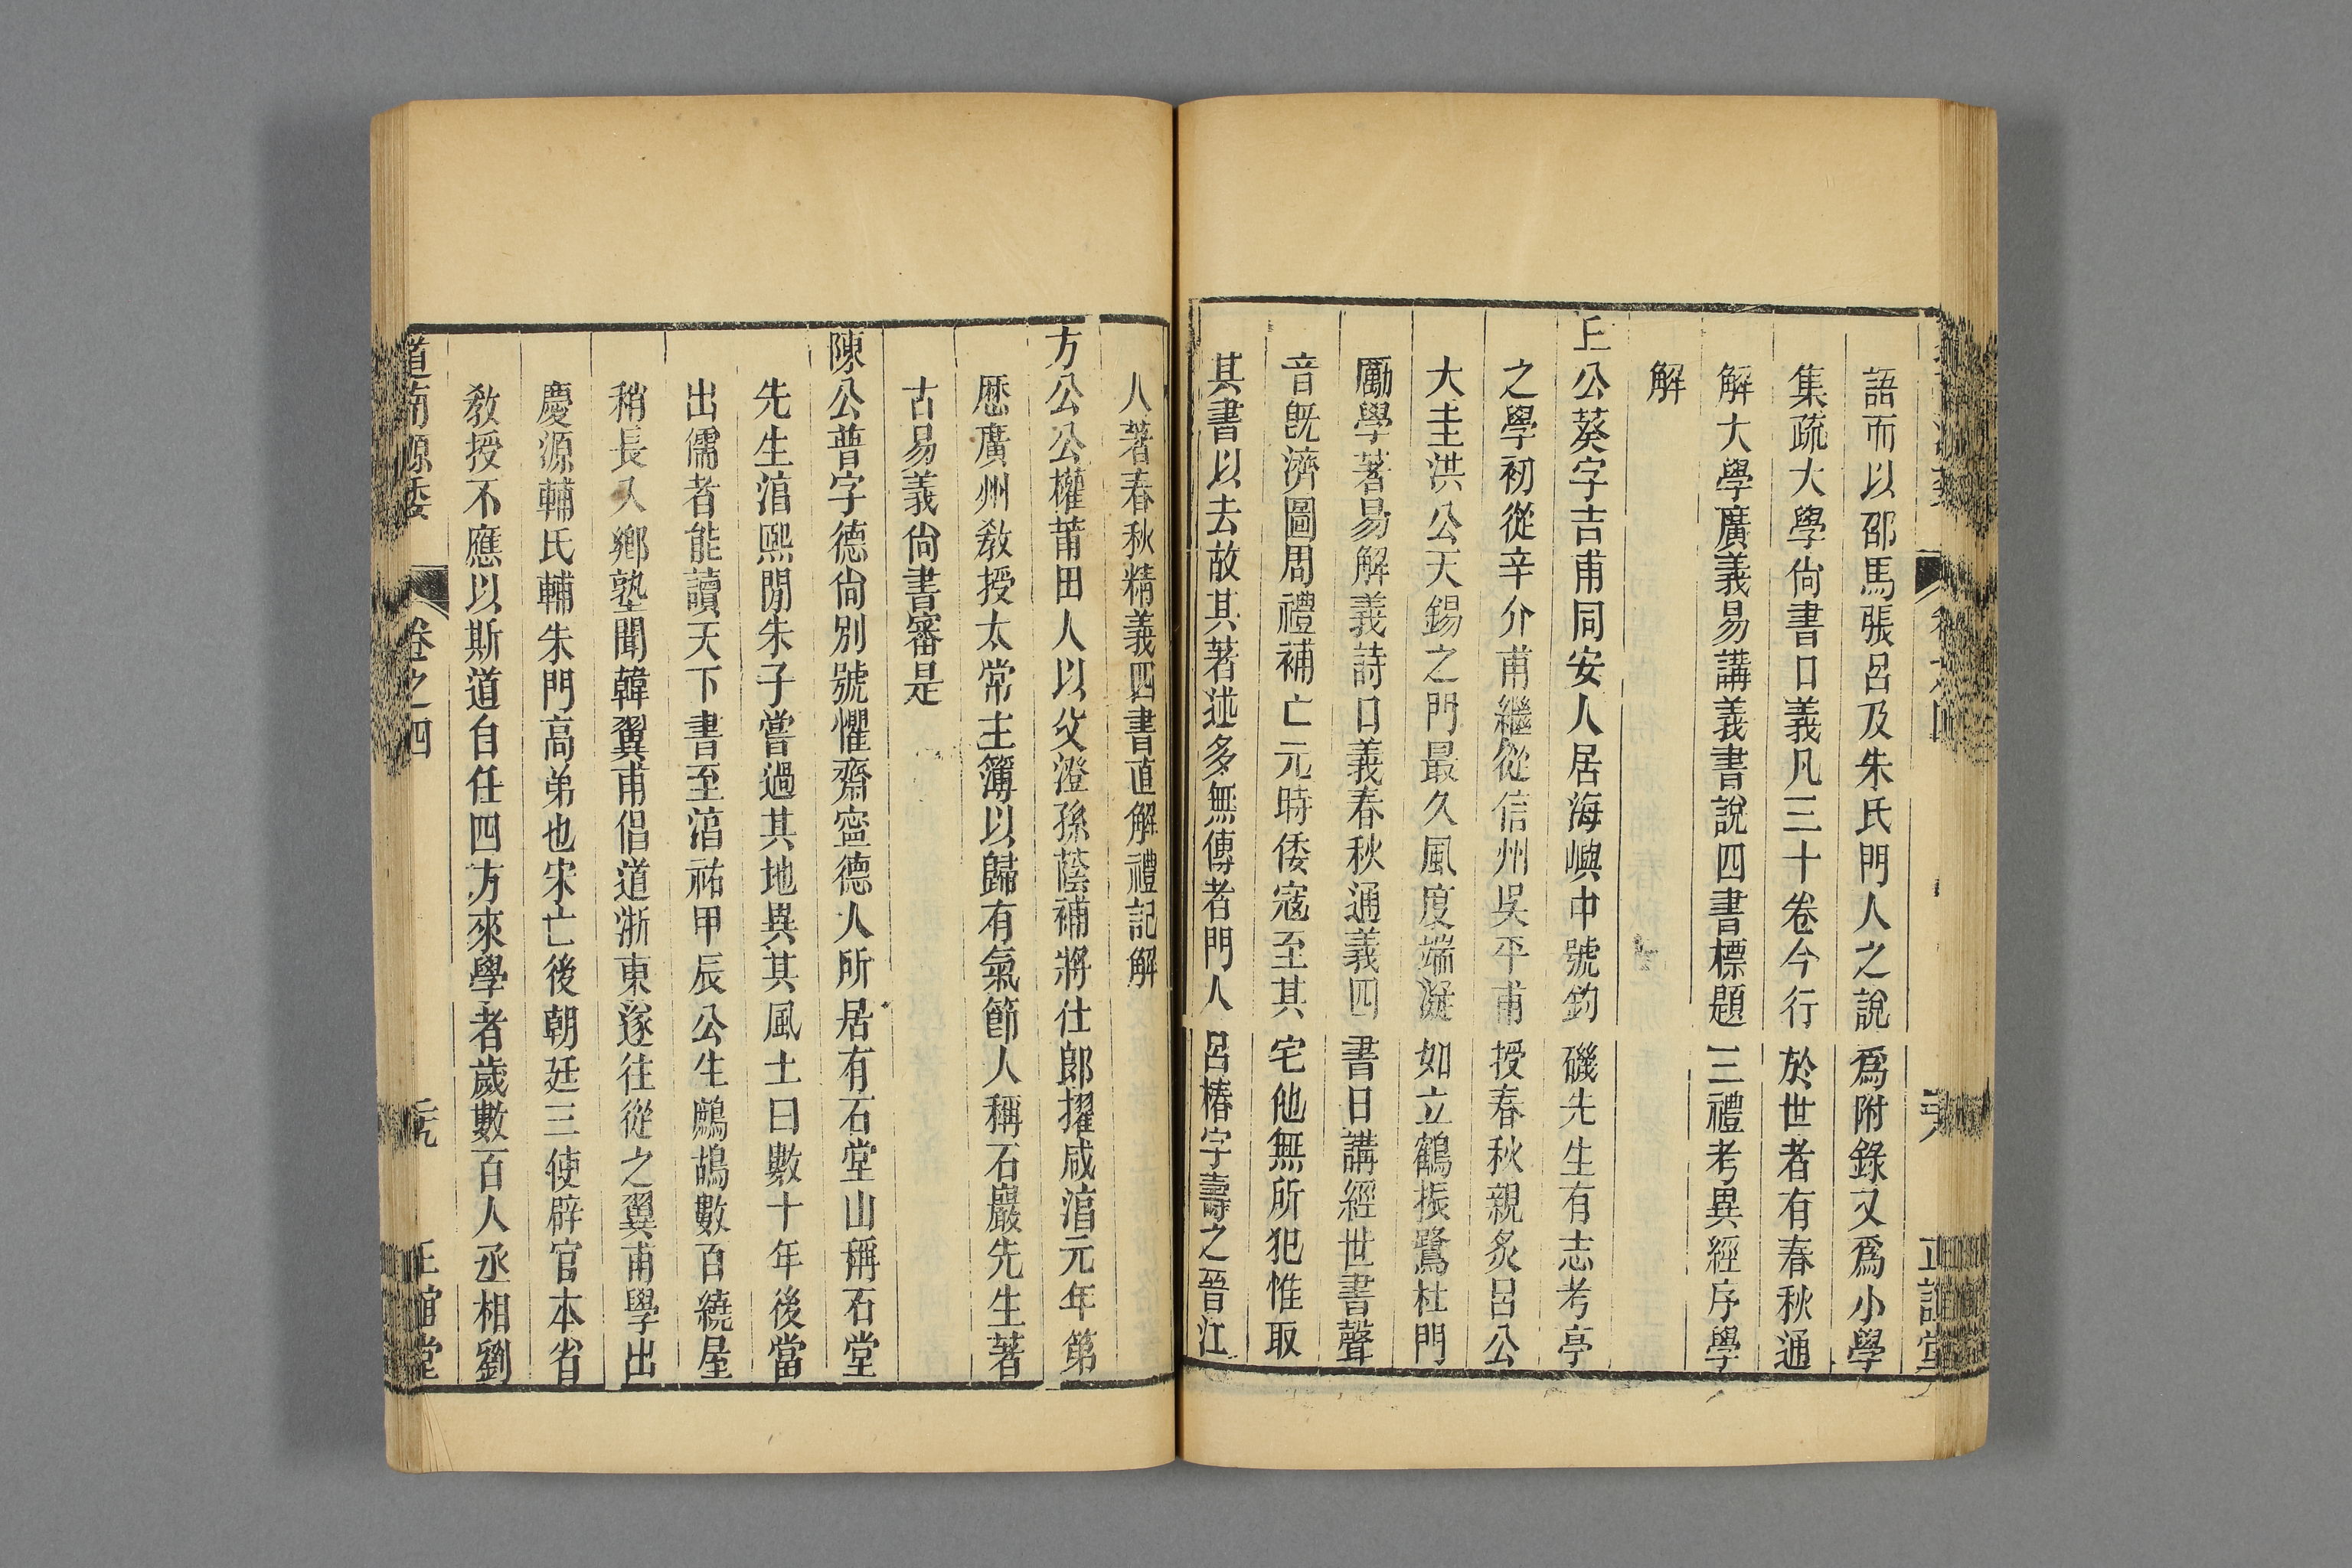 語而以邵馬張呂及朱氏門人之說爲附錄又爲小學
集疏大學尙書口義凡三十卷今行於世者有春秋通
解大學廣義易講義書說四書標題三禮考異經序學
解
丘公葵字吉甫同安人居海嶼中號釣磯先生有志考亭
之學初從辛介甫繼從信州吳平甫授春秋親炙呂公
大圭洪公天錫之門最久風度端凝如立鶴振鷺杜門
勵學著易解義詩口義春秋通義四書日講經世書聲
音旣濟圖周禮補亡元時倭寇至其宅他無所犯惟取
其書以去故其著述多無傳者門人呂椿字壽之晉江
人著春秋精義四書直解禮記解
方公公權莆田人以父澄孫蔭補將仕郎擢咸淳元年第
歷廣州敎授太常主簿以歸有氣節人稱石巖先生著
古易義尙書審是
陳公普字德尙別號懼齋寧德人所居有石堂山稱石堂
先生淳熙閒朱子嘗過其地異其風土曰數十年後當
出儒者能讀天下書至淳祐甲辰公生鷓鴣數百繞屋
稍長入鄉塾聞韓翼甫倡道浙東遂往從之翼甫學出
慶源輔氏輔朱門高弟也宋亡後朝廷三使辟官本省
敎授不應以斯道自任四方來學者歲數百人丞相劉
道南源委 卷之四 正誼堂